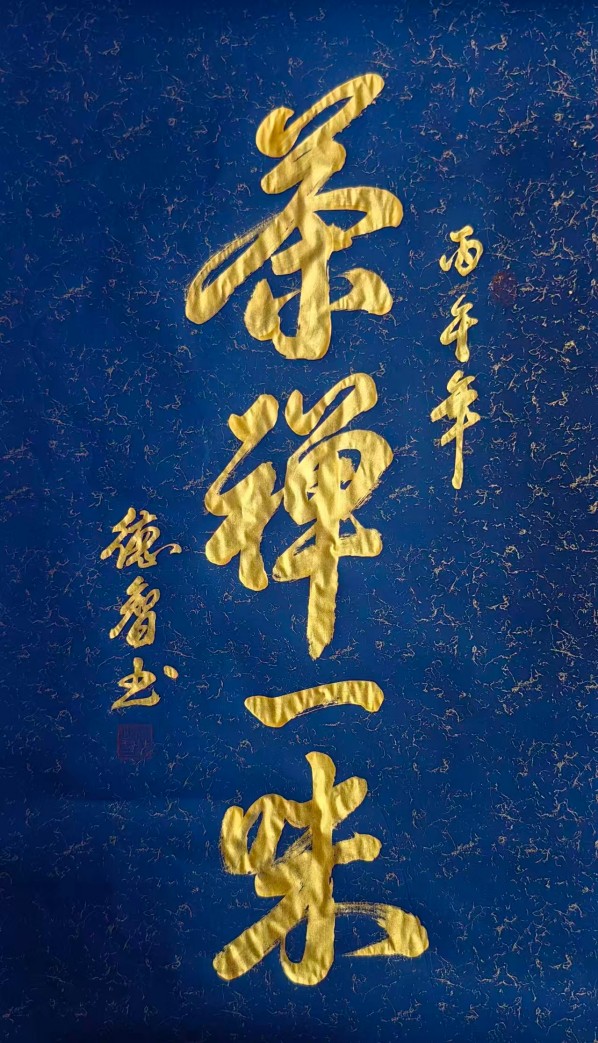 丙午年
茶禅一味
德智书